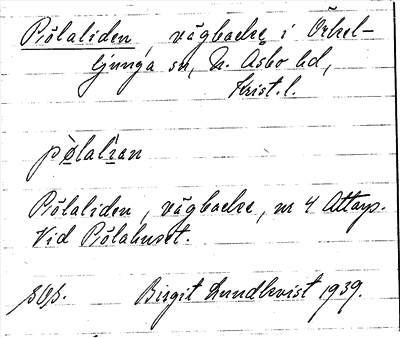 Pölaliden, vägbacke i Örkel-
ljunga sn, N. Åsbo hd,
Krist. l.
pø̀lalìan
Pölaliden, vägbacke, nr 4 Attarp.
Vid Pölahuset.
Birgit Lundkvist 1939.